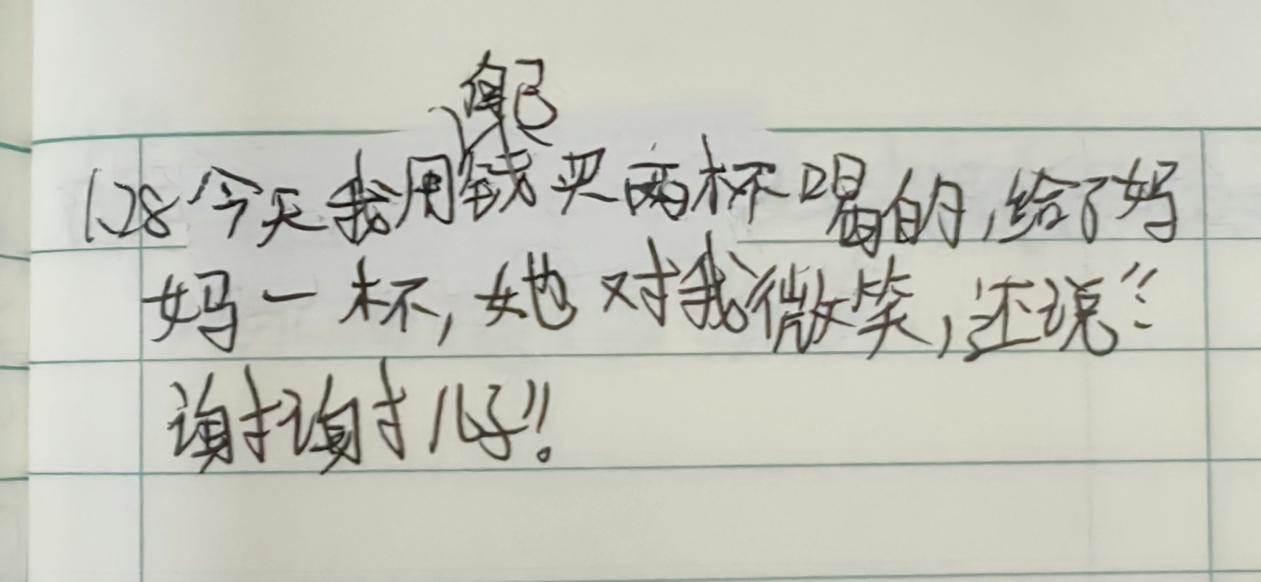 自己
1.28 今天我用钱买两杯喝的,给了妈
妈一杯,她对我微笑,还说:“
谢谢儿子”!